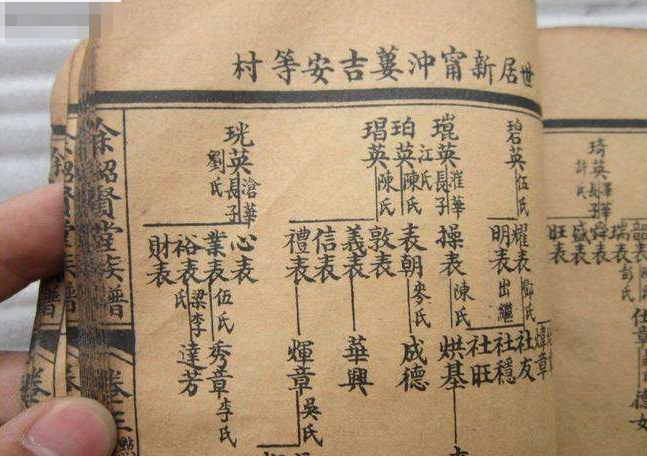 世居新甯沖蔞吉安等村
琦英
澤華長子
許氏
韶表
瑞表
彭氏
舜表
盛表
旺表
任章
德女
碧英
伍氏
耀表
鄧氏
明表
出繼
煒章
社友
社穩
社旺
琨英
漼華長子
江氏
操表
陳氏
烘基
珀英
陳氏
袁朝
麥氏
成德
琩英
陳氏
敦表
義表
華興
信表
禮表
煇章
吳氏
珖英
滄華長子
劉氏
心表
業表
伍氏
秀章
李氏
裕表
梁李氏
達芳
財表
余紹賢堂族譜
卷三